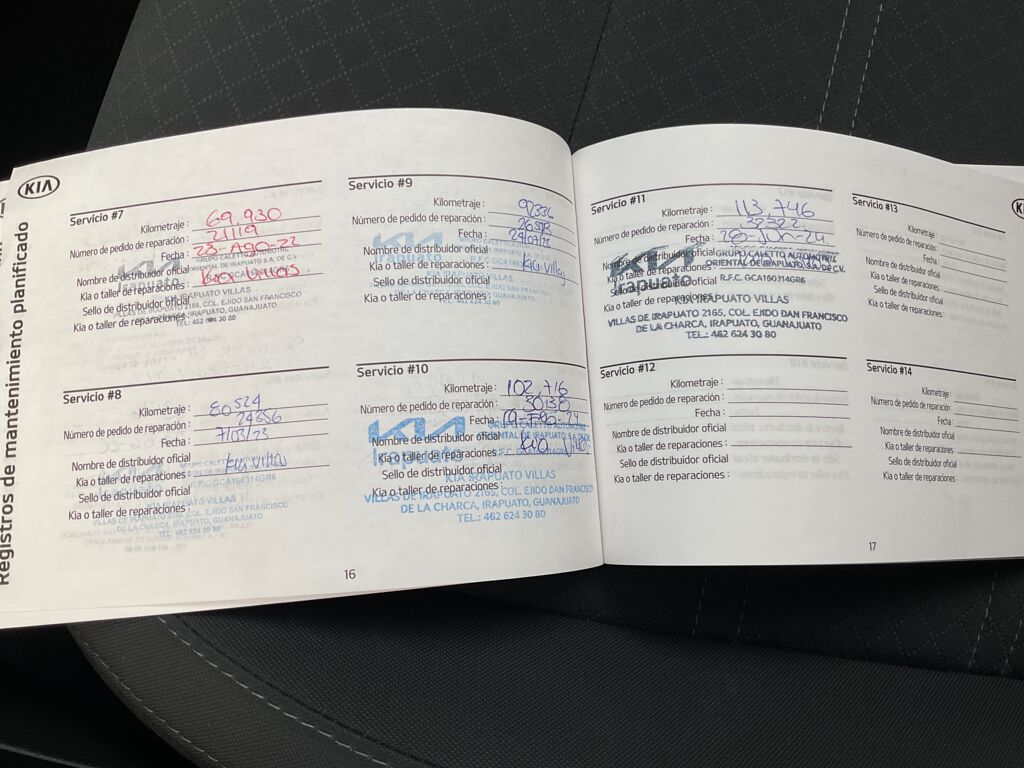 Registros de mantenimiento planificado
KIA
Servicio #7
Kilometraje : 69,930
Número de pedido de reparación : 21119
Fecha : 23-Ago-22
Nombre de distribuidor oficial
Kia o taller de reparaciones : Kia Villas
Sello de distribuidor oficial
Kia o taller de reparaciones :
KIA
Irapuato
GRUPO CALETTO AUTOMOTRIZ
ORIENTAL DE IRAPUATO S.A. DE C.V.
KIA IRAPUATO VILLAS
VILLAS DE IRAPUATO 2165, COL. EJIDO SAN FRANCISCO
DE LA CHARCA, IRAPUATO, GUANAJUATO
TEL: 462 624 30 80
Servicio #8
Kilometraje : 80524
Número de pedido de reparación : 24356
Fecha : 7/03/23
Nombre de distribuidor oficial
Kia o taller de reparaciones : Kia Villas
Sello de distribuidor oficial
Kia o taller de reparaciones :
R.F.C GCA160314GR6
KIA IRAPUATO VILLAS
VILLAS DE IRAPUATO 2165, COL. EJIDO SAN FRANCISCO
DE LA CHARCA, IRAPUATO, GUANAJUATO
TEL: 462 624 30 80
Servicio #9
Kilometraje : 92336
Número de pedido de reparación :
Fecha :
Nombre de distribuidor oficial
Kia o taller de reparaciones : Kia Villas
Sello de distribuidor oficial
Kia o taller de reparaciones :
KIA
Irapuato
Servicio #10
Kilometraje : 102,716
Número de pedido de reparación : 30138
Fecha :
Nombre de distribuidor oficial
Kia o taller de reparaciones :
Sello de distribuidor oficial
Kia o taller de reparaciones :
KIA
Irapuato
KIA IRAPUATO VILLAS
VILLAS DE IRAPUATO 2165, COL. EJIDO DAN FRANCISCO
DE LA CHARCA, IRAPUATO, GUANAJUATO
TEL.: 462 624 30 80
16
Servicio #11
Kilometraje : 113,746
Número de pedido de reparación : 32322
Fecha : 28-Jun-24
Nombre de distribuidor oficial
Kia o taller de reparaciones :
Sello de distribuidor oficial
Kia o taller de reparaciones :
KIA
Irapuato
GRUPO CALETTO AUTOMOTRIZ
ORIENTAL DE IRAPUATO, S.A. DE C.V.
R.F.C. GCA160314GR6
KIA IRAPUATO VILLAS
VILLAS DE IRAPUATO 2165, COL. EJIDO DAN FRANCISCO
DE LA CHARCA, IRAPUATO, GUANAJUATO
TEL.: 462 624 30 80
Servicio #12
Kilometraje :
Número de pedido de reparación :
Fecha :
Nombre de distribuidor oficial
Kia o taller de reparaciones :
Sello de distribuidor oficial
Kia o taller de reparaciones :
Servicio #13
Kilometraje :
Número de pedido de reparación :
Fecha :
Nombre de distribuidor oficial
Kia o taller de reparaciones :
Sello de distribuidor oficial
Kia o taller de reparaciones :
Servicio #14
Kilometraje :
Número de pedido de reparación :
Fecha :
Nombre de distribuidor oficial
Kia o taller de reparaciones :
Sello de distribuidor oficial
Kia o taller de reparaciones :
17